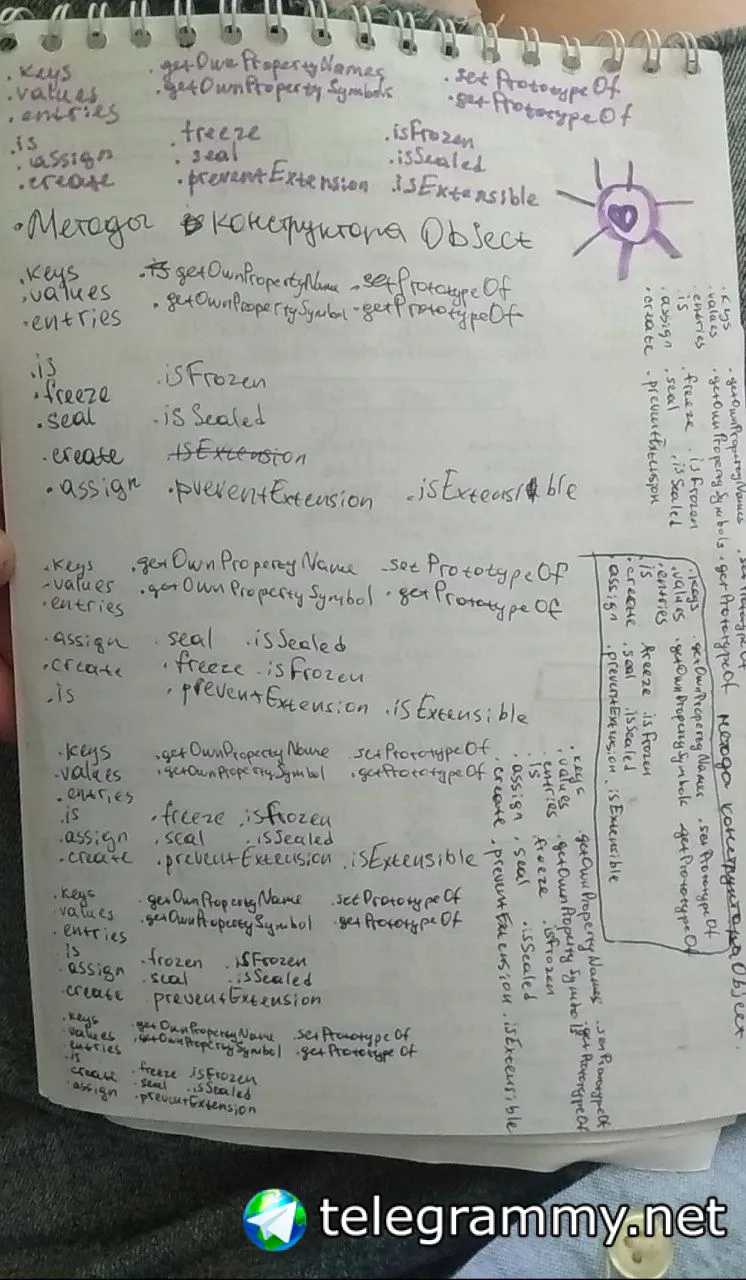 .keys .getOwnPropertyNames .setPrototypeOf
.values .getOwnPropertySymbols .getPrototypeOf
.entries
.is .freeze .isFrozen
.assign .seal .isSealed
.create .preventExtension .isExtensible
.Методы конструктора Object
.keys .getOwnPropertyName .setPrototypeOf
.values .getOwnPropertySymbol .getPrototypeOf
.entries
.is
.freeze .isFrozen
.seal .isSealed
.create isExtension
.assign .preventExtension .isExtensible
.keys .getOwnPropertyName .setPrototypeOf
.values .getOwnPropertySymbol .getPrototypeOf
.entries
.assign .seal .isSealed
.create .freeze .isFrozen
.is .preventExtension .isExtensible
.keys .getOwnPropertyName .setPrototypeOf
.values .getOwnPropertySymbol .getPrototypeOf
.entries
.is .freeze .isFrozen
.assign .seal .isSealed
.create .preventExtension .isExtensible
.keys .getOwnPropertyName .setPrototypeOf
.values .getOwnPropertySymbol .getPrototypeOf
.entries
.is .frozen .isFrozen
.assign .seal .isSealed
.create preventExtension
.keys .getOwnPropertyName .setPrototypeOf
.values .getOwnPropertySymbol .getPrototypeOf
.entries
.is .freeze .isFrozen
.create .seal .isSealed
.assign .preventExtension
.keys .getOwnPropertyNames .setPrototypeOf
.values .getOwnPropertySymbols .getPrototypeOf
.entries
.is .freeze .isFrozen
.assign .seal .isSealed
.create .preventExtension
метода конструктора Object.
.keys .getOwnPropertyNames .setPrototypeOf
.values .getOwnPropertySymbols .getPrototypeOf
.entries
.is .freeze .isFrozen
.create .seal .isSealed
.assign .preventExtension .isExtensible
.keys .getOwnPropertyNames .setPrototypeOf
.values .getOwnPropertySymbols .getPrototypeOf
.entries
.is .freeze .isFrozen
.assign .seal .isSealed
.create .preventExtension .isExtensible
telegrammy.net